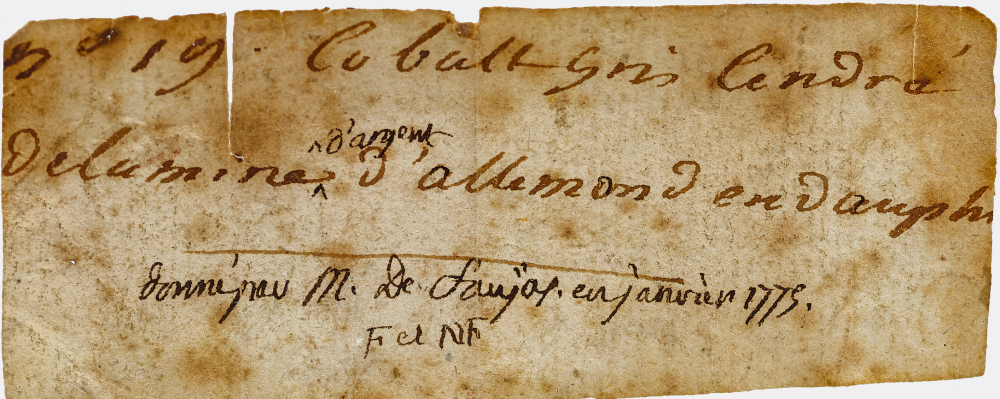 n° 19 Cobalt Gris Cendré
delamine ^d'argent d'allemond en dauphi
donné par M. De Faujas. en janvier 1775.
F et NF